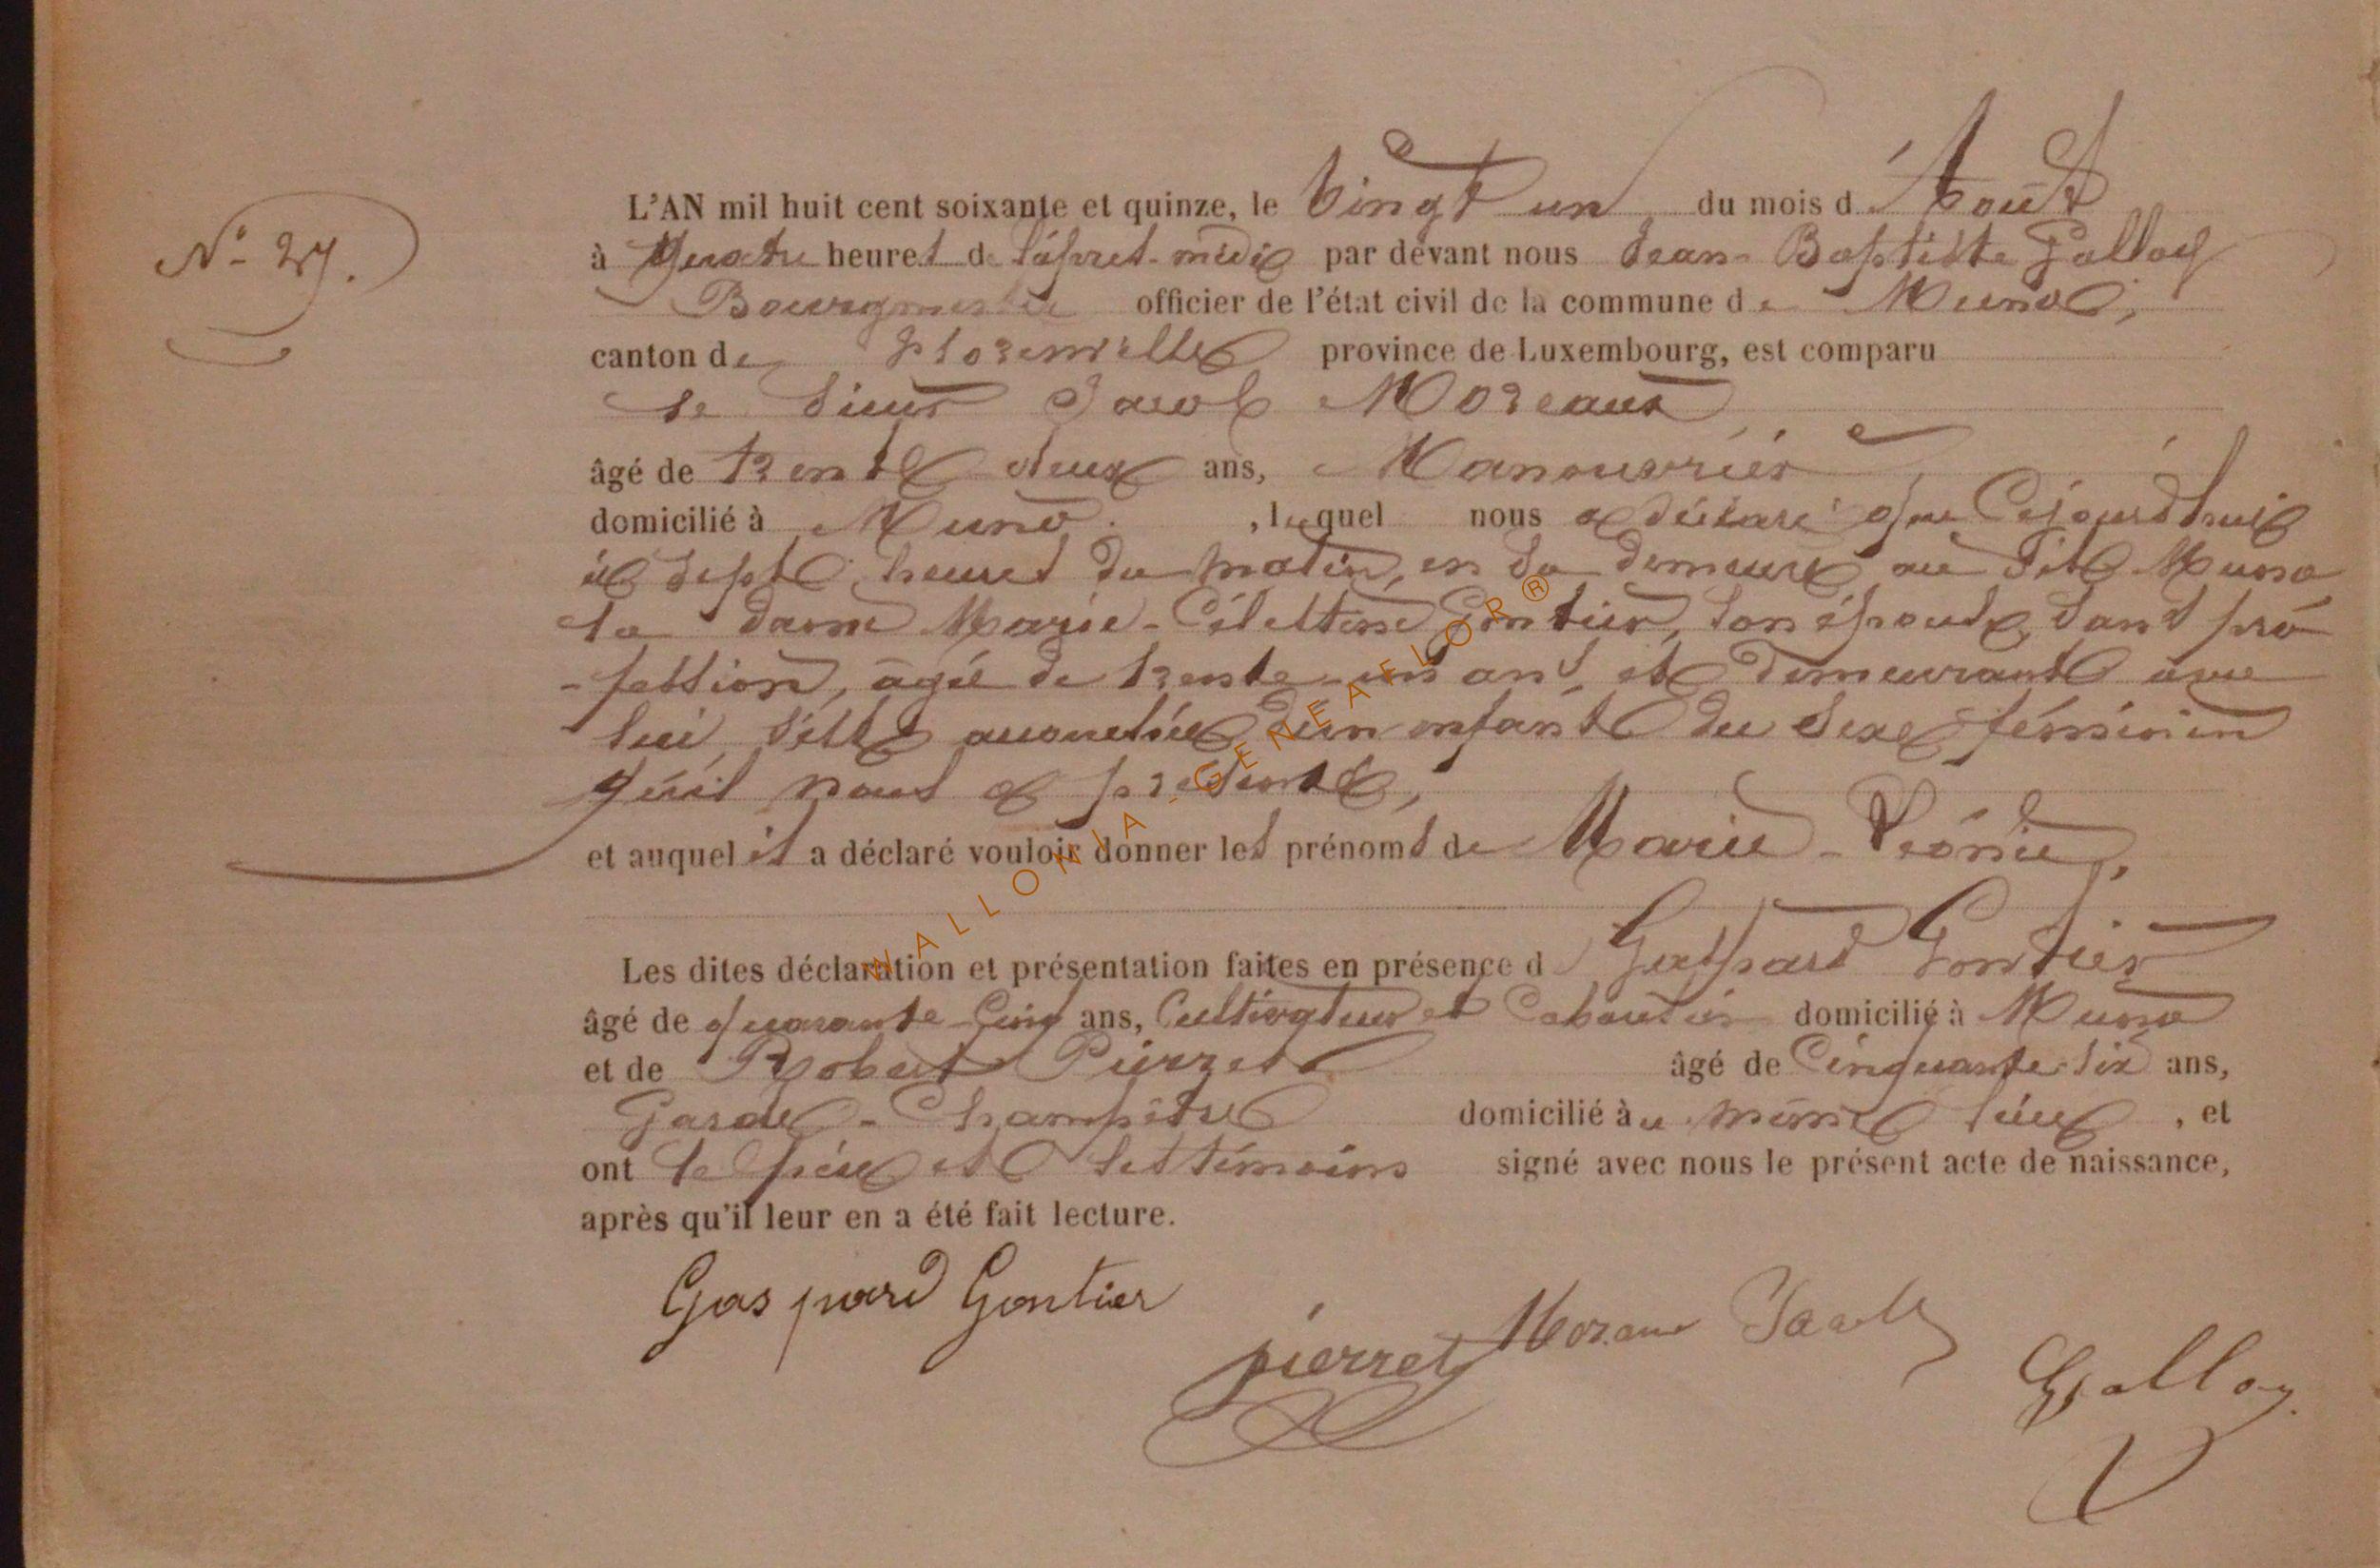 L'AN mil huit cent soixante et quinze, le Vingt un du mois d'Août
N° 27.
à quatre heures de l'après-midi par devant nous Jean-Baptiste Galloy
Bourgmestre officier de l'état civil de la commune de Muno,
canton de Florenville province de Luxembourg, est comparu
le sieur Jacob Moreaux
âgé de trente deux ans, Manouvrier
domicilié à Muno. , lequel nous a déclaré que Cejourd'hui
à sept heures du matin, en sa demeure au dit Muno
la dame Marie-Célestine Gontier, son épouse, sans pro
-fession, âgée de trente-un ans, et demeurant avec
lui, s'est accouchée d'un enfant du sexe féminin
qu'il nous a présenté,
et auquel il a déclaré vouloir donner les prénoms de Marie-Léonie,
Les dites déclaration et présentation faites en présence d Gaspard Gontier
âgé de quarante-Cinq ans, Cultivateur et domicilié à Muno
et de Robert Pierret âgé de Cinquante-six ans,
Garde-Champêtre domicilié au même lieu , et
ont le père et les témoins signé avec nous le présent acte de naissance,
après qu'il leur en a été fait lecture.
Gaspard Gontier
pierret Moreau Jacob
Galloy
WALLONIA-GENEAFLOR®